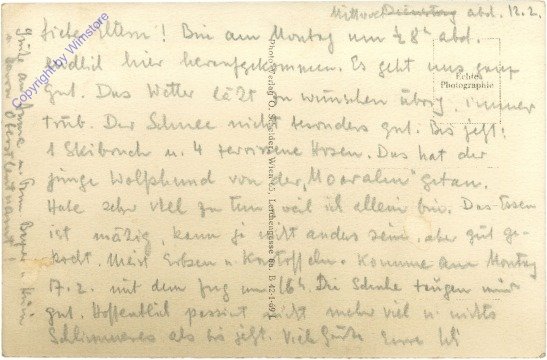 Mittwoch Dienstag abd. 12.2.
Liebe Eltern! Bin am Montag um ½8ʰ abd.
endlich hier heraufgekommen. Es geht uns ganz
gut. Das Wetter läßt zu wünschen übrig, immer
trüb. Der Schnee nicht besonders gut. Bis jetzt
1 Skibruch u. 4 zerrissene Hosen. Das hat der
junge Wolfshund von der getan.
Habe sehr viel zu tun, weil ich allein bin. Das Essen
ist mäßig, kann ja nicht anders sein, aber gut ge-
kocht. Meist Erbsen u. Kartoffeln. Komme am Montag
17.2. mit dem Zug um 16ʰ. Die Schuhe taugen
gut. Hoffentlich passiert nicht mehr viel u. nichts
Schlimmeres als bis jetzt. Viele Grüße Euer
Grüße an u. Frau u.
Echtes
Photographie
Photo-Verlag O. Schneider, Wien
Copyright by Winstore